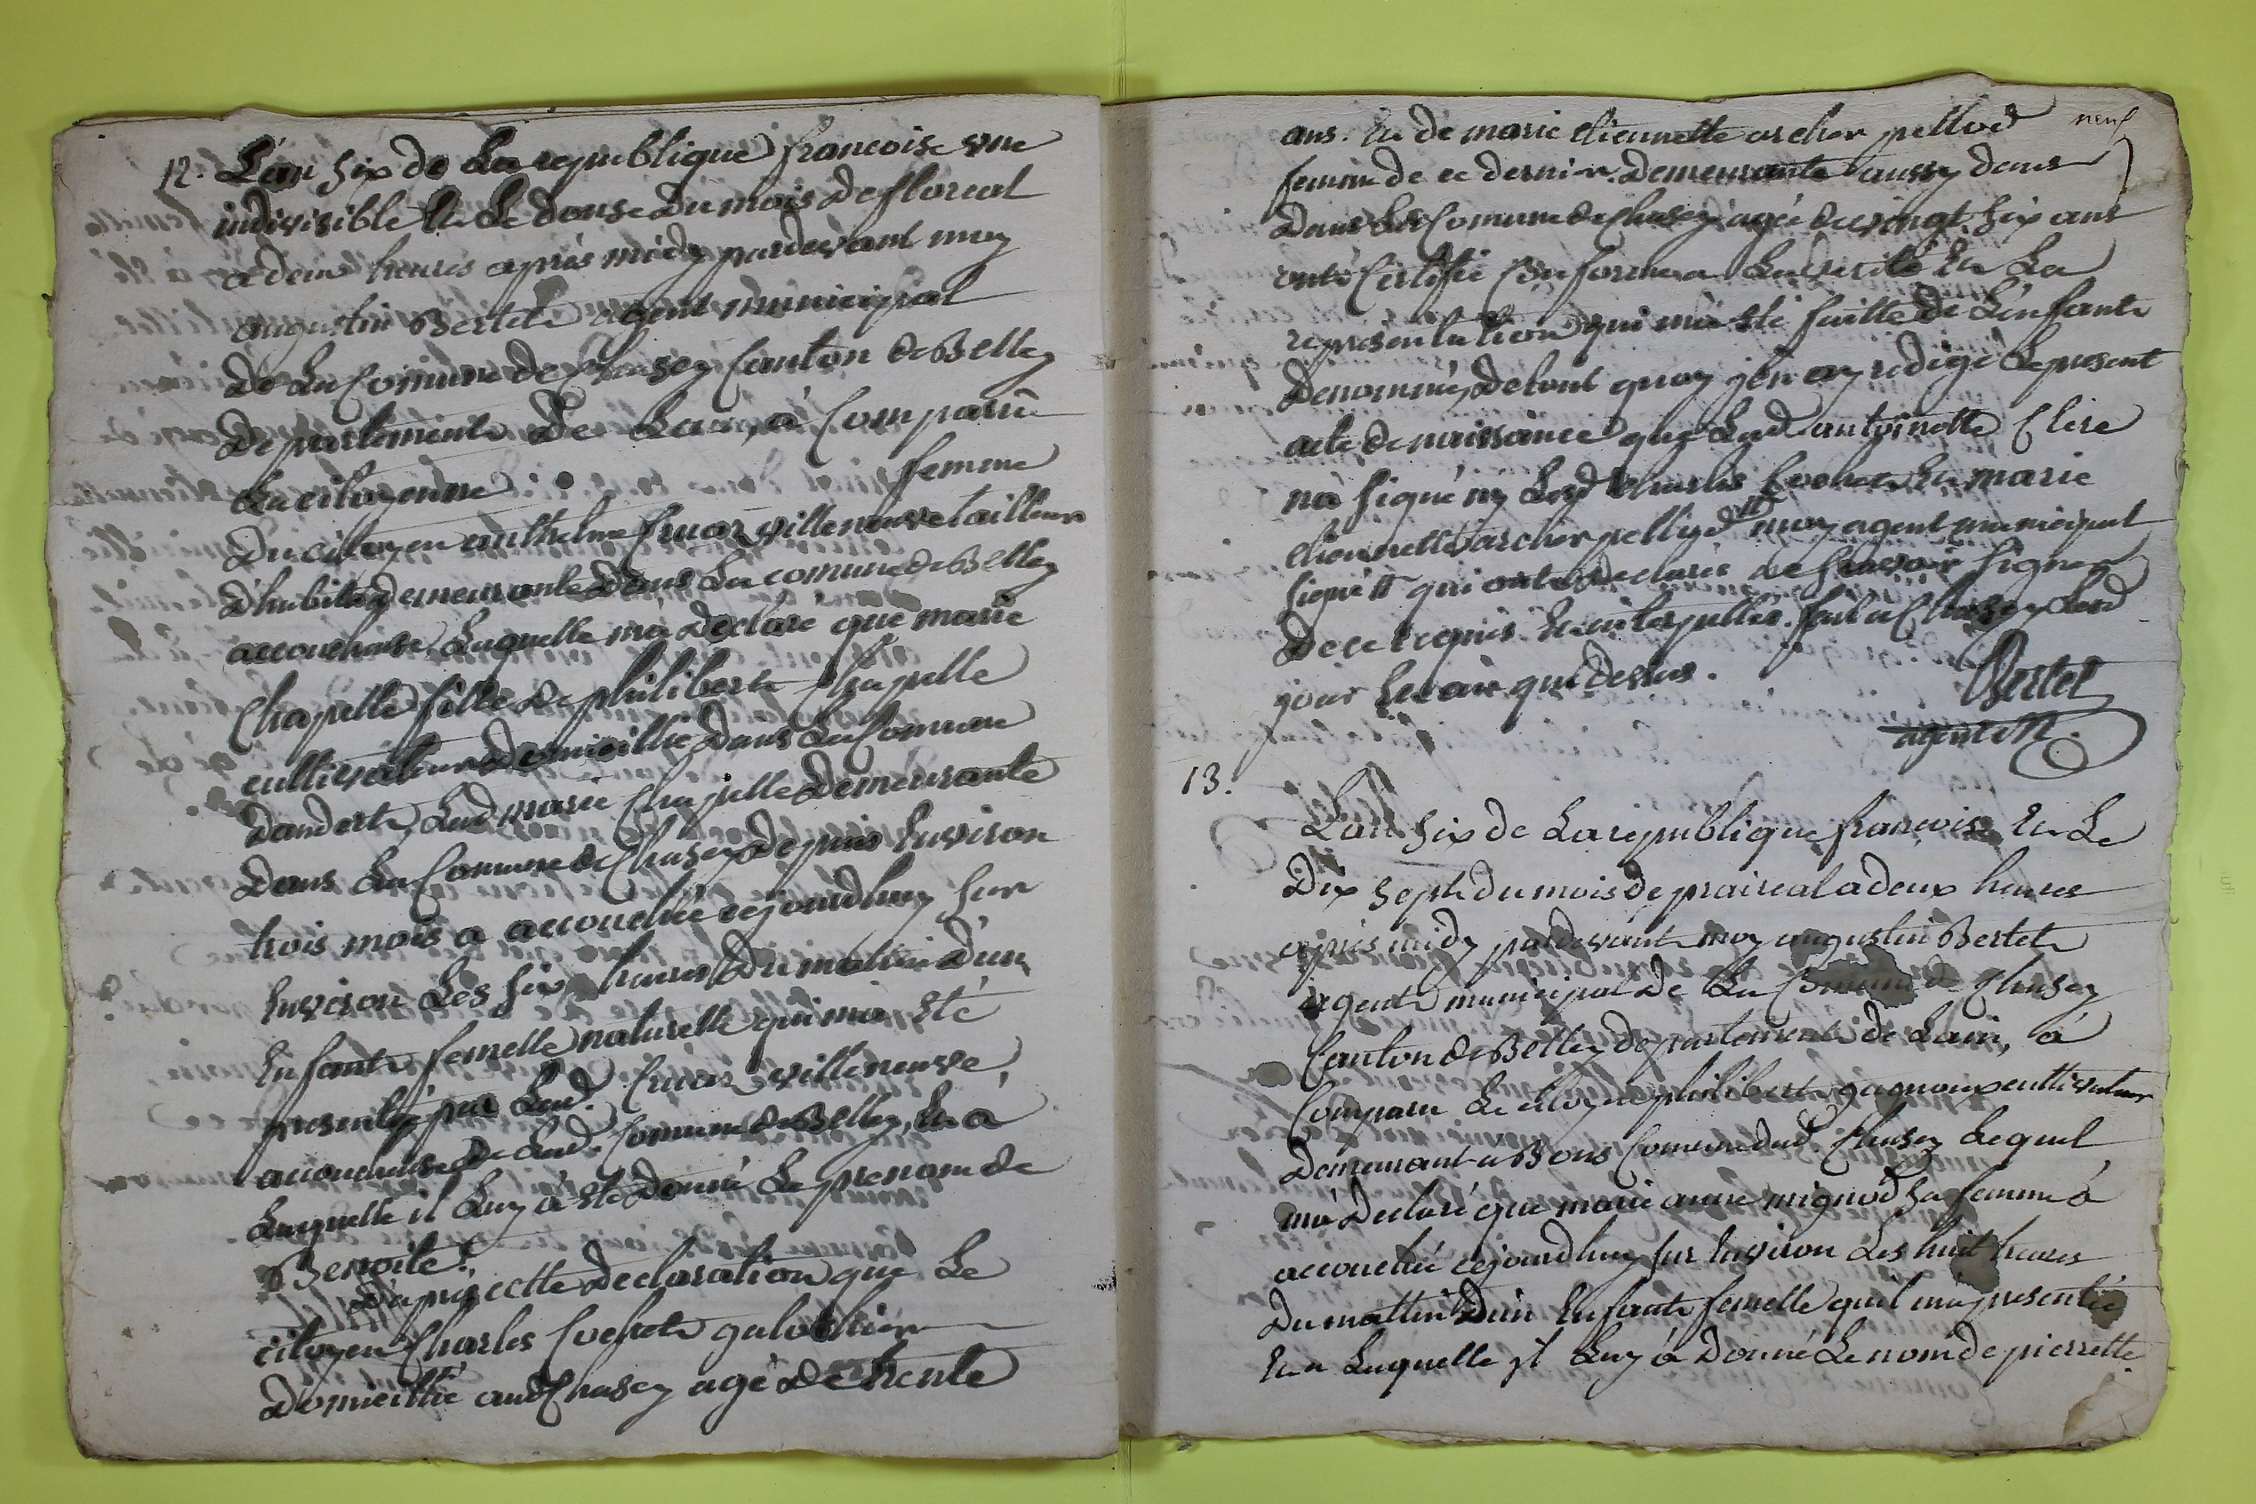 12. L'an six de La republique francoise une
indivisible Et Le douse du mois de floreal
a deux heures apres midy pardevant moy
augustin Bertet agent municipal
de La Comune de Chasey Canton de Belley
departement de Lain, à Comparu
La citoyenne femme
du citoyen anthelme villeneuve tailleur
d'habits demeurante dans La comune de Belley
accoucheuse Laquelle m'a declaré que marie
Chapelle fille de philibert Chapelle
cultivateur domicillié dans La Comune
dandert, Lad marie Chapelle demeurante
dans La Comune de Chasey depuis Environ
trois mois a accouchée cejourdhuy sur
Environ Les six heures du matin d'un
Enfant femelle naturelle qui m'a Eté
presentée par Lad. villeneuve
accoucheuse de Lad. Comune de Belley, Et a
Laquelle il Luy à Eté donné Le prenom de
Benoite.
D'aprés cette declaration que Le
citoyen Charles Cochet galochier
domicillié aud Chasey agé de trente
neuf
ans. Et de marie etiennette archer pellod
femme de ce dernier. demeurante aussy dans
dans La Comune de Chasey agée de vingt six ans
ont Certifié Conforme a La verité Et La
representation qui m'a eté faitte de L'enfant
denommé, detout quoy j'en ay redigé Le present
acte de naissance que Lad antoinette Clere
n'a signé ny Lesd Charles Cochet Et marie
etiennette archer pellod # moy agent municipal
signé # qui ont declarés ne scavoir signer
de ce requis Et interpellés. fait a Chasey Lesd
jour Et an que dessus.
Bertet
agent M.
13.
L'an six de La republique francoise Et Le
Dix sept du mois de praireal a deux heures
apres midy pardevant moy augustin Bertet
agent municipal de La Comune de Chasey
Canton de Belley departement de Lain, à
Comparu Le citoyen philibert gagnoux cultivateur
Demeurant a Bons Comune dud. Chasey Lequel
m'à declaré que marie anne mignod sa femme à
accouchée cejourdhuy sur Environ Les huit heures
Du mattin D'un Enfant femelle qu'il m'a presentée
Et a Laquelle il Luy à Donné Le nom de pierrette.